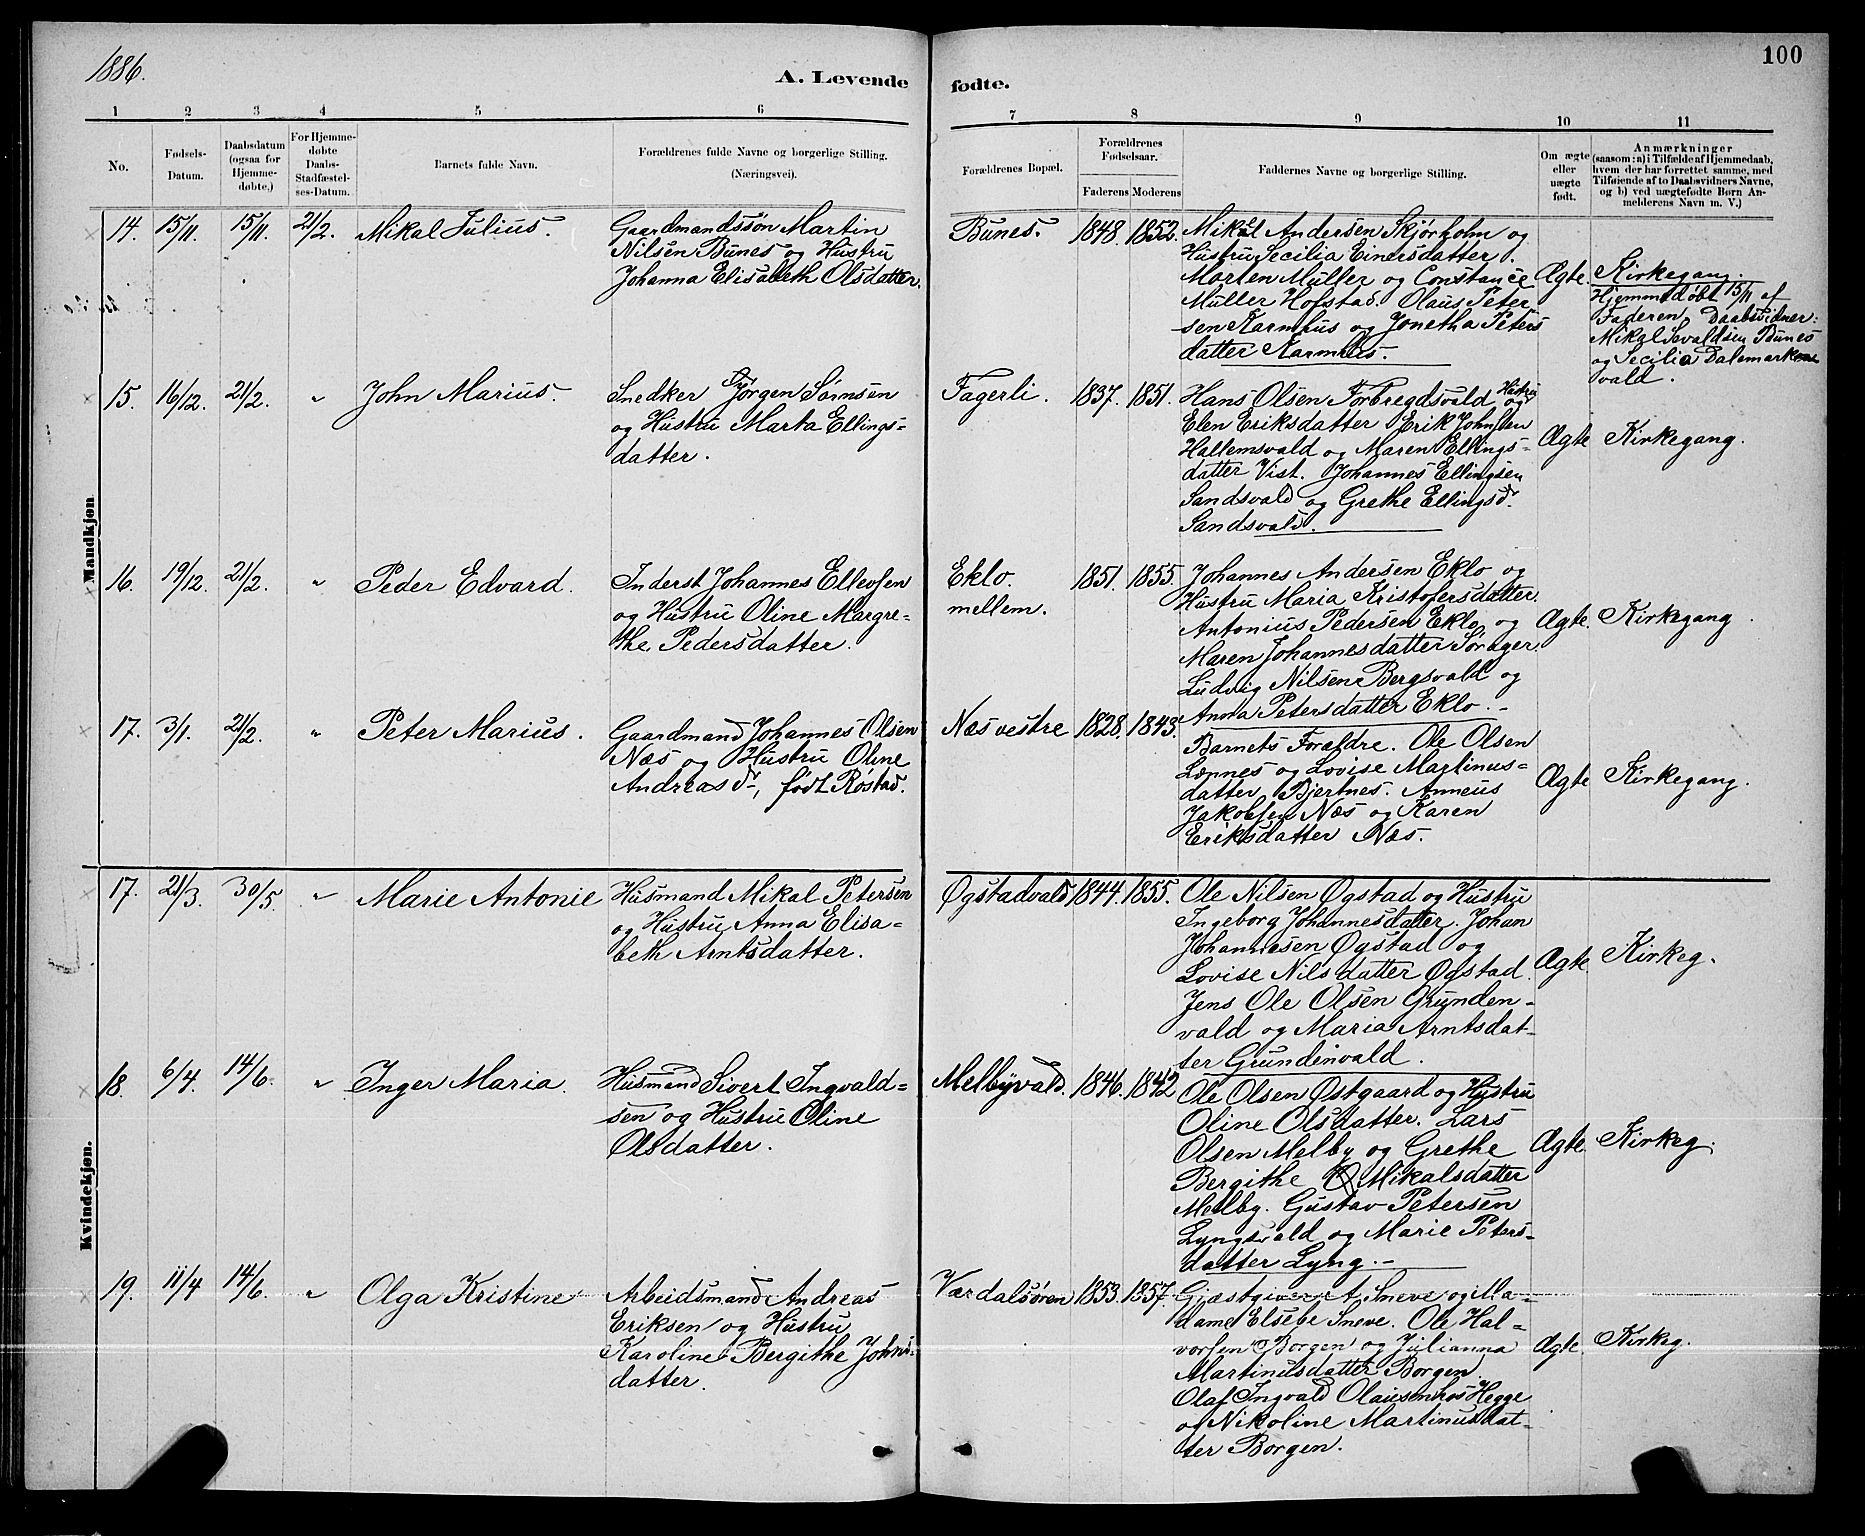 1886.
100
A. Levende fødte.
1 2 3 4 5 6 7 8 9 10 11
No.
Fødsels-
Datum.
Daabsdatum
(ogsaa for
Hjemme-
døbte.)
For Hjemme-
døbte
Daabs-
Stadfæstel-
ses-Datum.
Barnets fulde Navn.
Forældrenes fulde Navne og borgerlige Stilling.
(Næringsvei).
Forældrenes Bopæl.
Forældrenes
Fødselsaar.
Faderens Moderens
Faddernes Navne og borgerlige Stilling.
Om ægte
eller
uægte
født.
Anmærkninger
(saasom: a) i Tilfælde af Hjemmedaab,
hvem der har forrettet samme, med
Tilføiende af to Daabsvidners Navne,
og b) ved uægtefødte Børn An-
melderens Navn m. V.)
Mandkjøn
14. 15/11. 15/11. 21/2. Mikal Julius.
Gaardmandssøn Martin
Nilsen Bunes og Hustru
Johanna Elisabeth Olsdatter.
Bunes. 1848. 1852.
Mikal Andersen Skjørholm og
Hustru Secilia Einersdatter.
Morten Müller og Constance
Müller Hofstad. Olaus Peter
sen Karmhus og Jonetha Peters
datter Karmhus.
Ægte. Kirkegang.
Hjemmedøbt 15/11 af
Faderen. Daabsvidner:
Mikal Sevaldsen Bunes
og Secilia Dalemark
vald.
15. 16/12. 21/2. " John Marius.
Snedker Jørgen Sørnsen
og Hustru Marta Ellings=
datter.
Fagerli. 1837. 1851.
Hans Olsen Forbregdsvald og Hustru
Elen Eriksdatter Erik Johnsen
Hallemsvald og Maren Ellings=
datter Vist. Johannes Ellingsen
Sandsvald og Grethe Ellingsdr.
Sandsvald.
Ægte Kirkegang.
16. 19/12. 21/2. " Peder Edvard.
Inderst Johannes Ellevsen
og Hustru Oline Margre=
the Pedersdatter.
Eklo.
mellem.
1851. 1855.
Johannes Andersen Eklo og
Hustru Maria Kristofersdatter.
Antonius Pedersen Eklo og
Maren Johannesdatter Sørager.
Ludvig Nilsen Bergsvald og
Anna Petersdatter Eklo.
Ægte. Kirkegang.
17. 3/1. 21/2. " Peter Marius.
Gaardmand Johannes Olsen
Næs og Hustru Oline
Andreasdr, født Røstad.
Næs vestre 1828. 1843.
Barnets Forældre. Ole Olsen
Lænnes og Lovise Martinus=
datter Bjertnes. Anneus
Jakobsen Næs og Karen
Eriksdatter Næs.
Ægte Kirkegang.
Kvindekjøn.
17. 21/3. 30/5. " Marie Antonie
Husmand Mikal Petersen
og Hustru Anna Elisa=
beth Arntsdatter.
Øgstadvald 1844. 1855.
Ole Nilsen Øgstad og Hustru
Ingeborg Johannesdatter. Johan
Johannesen Øgstad og
Lovise Nilsdatter Øgstad.
Jens Ole Olsen Grunden=
vald og Maria Arntsdat=
ter Grundenvald.
Ægte. Kirkeg.
18. 6/4. 14/6. " Inger Maria.
Husmand Sivert Ingvald=
sen og Hustru Oline
Olsdatter.
Melbyvald. 1846. 1842
Ole Olsen Østgaard og Hustru
Oline Olsdatter. Lars
Olsen Melby og Grethe
Bergithe Mikalsdatter
Melby. Gustav Petersen
Lyngsvald og Marie Peters=
datter Lyng.
Ægte. Kirkeg.
19. 11/4 14/6. " Olga Kristine
Arbeidsmand Andreas
Eriksen og Hustru
Karoline Bergithe Johns=
datter.
Værdalsøren 1853. 1857.
Gjæstgiver A. Sneve og Ma=
dame Elsebe Sneve. Ole Hal=
vorsen Borgen og Julianna
Martinusdatter Borgen.
Olaf Ingvald Olausen hos Hegge
og Nikoline Martinusdat=
ter Borgen.
Ægte. Kirkeg.